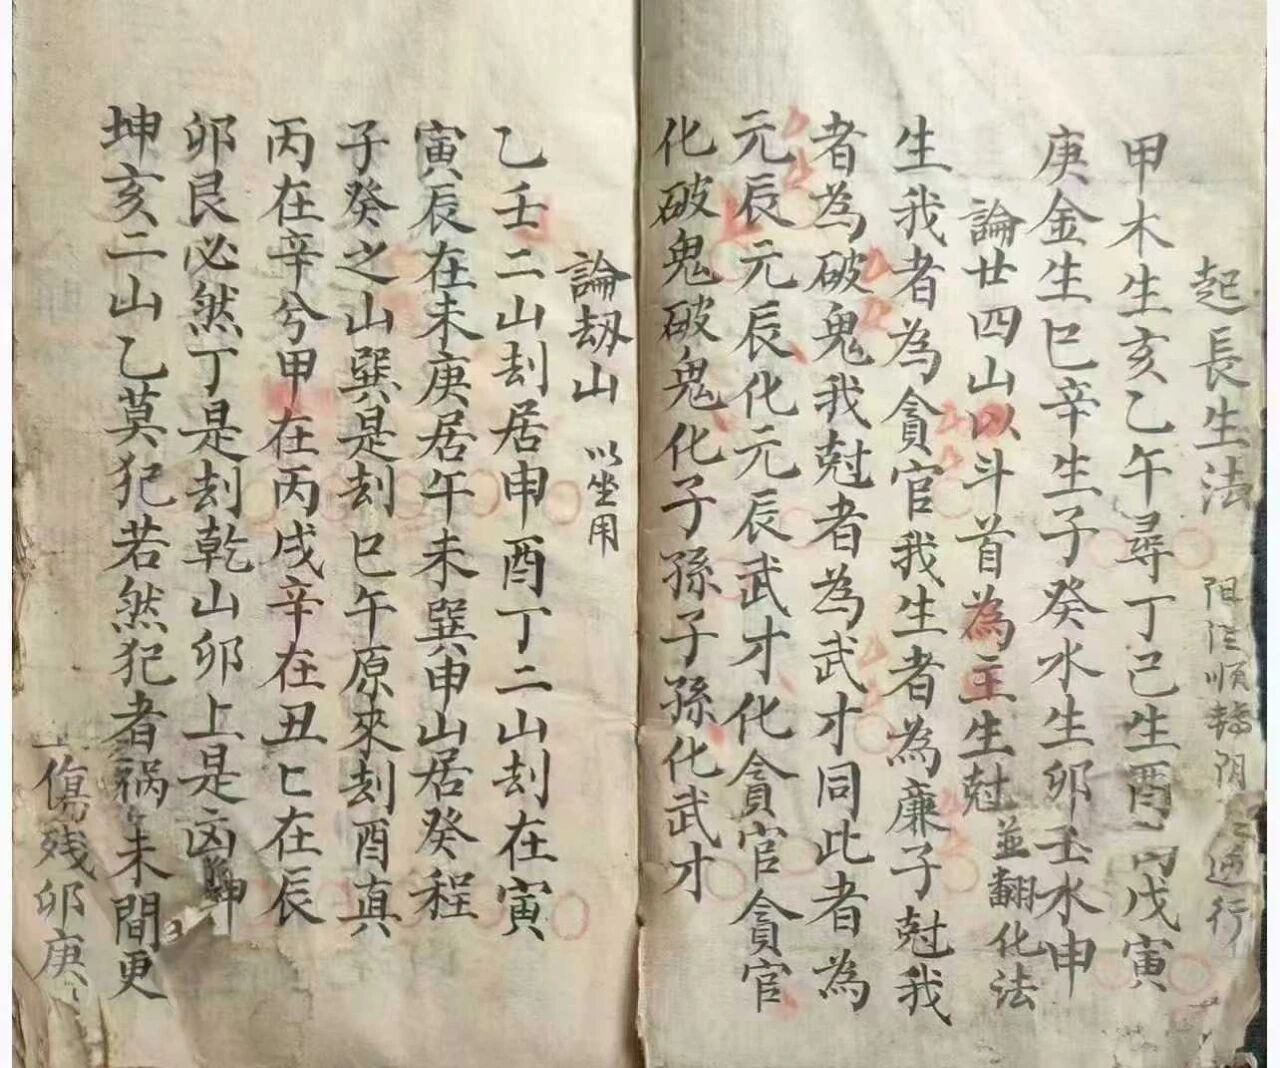 起長生法 陽陰順轉阴逆行
甲木生亥乙午尋丁己生酉丙戊寅
庚金生巳辛生子癸水生卯壬水申
論廿四山以斗首為主生尅並翻化法
生我者為貪官我生者為廉子尅我
者為破鬼我尅者為武才同此者為
元辰元辰化元辰武才化貪官貪官
化破鬼破鬼化子孫子孫化武才
論刼山 以坐用
乙壬二山刦居申酉丁二山刦在寅
寅辰在未庚居午未巽申山居癸程
子癸之山巽是刦巳午原來刦酉真
丙在辛兮甲在丙戌辛在丑匕在辰
卯艮必然丁是刦乾山卯上是凶坤
坤亥二山乙莫犯若然犯者祸未間更
傷残卯庚